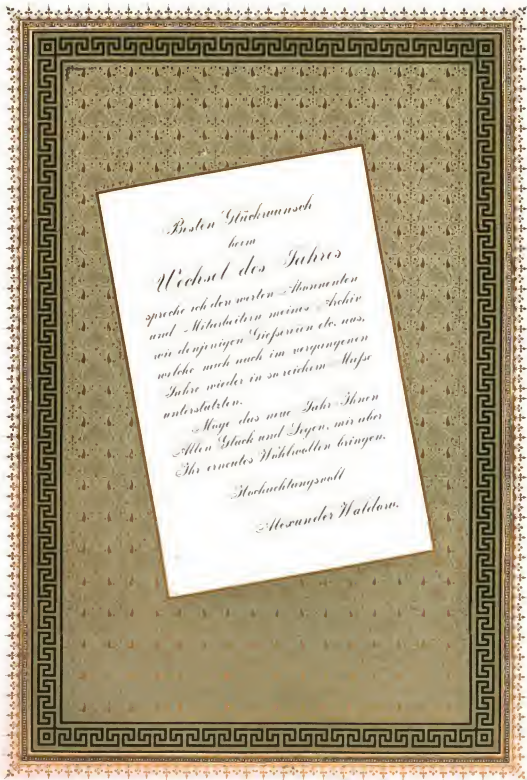 Besten Glückwunsch
beim
Wechsel des Jahres
spreche ich den werten Abonnenten
und Mitarbeitern meines Archiv
wie denjenigen Giefsereien etc. aus,
welche mich auch im vergangenen
Jahre wieder in so reichem Mafse
unterstützten.
Möge das neue Jahr Ihnen
Allen Glück und Segen, mir aber
Ihr erneutes Wohlwollen bringen.
Hochachtungsvoll
Alexander Waldow.